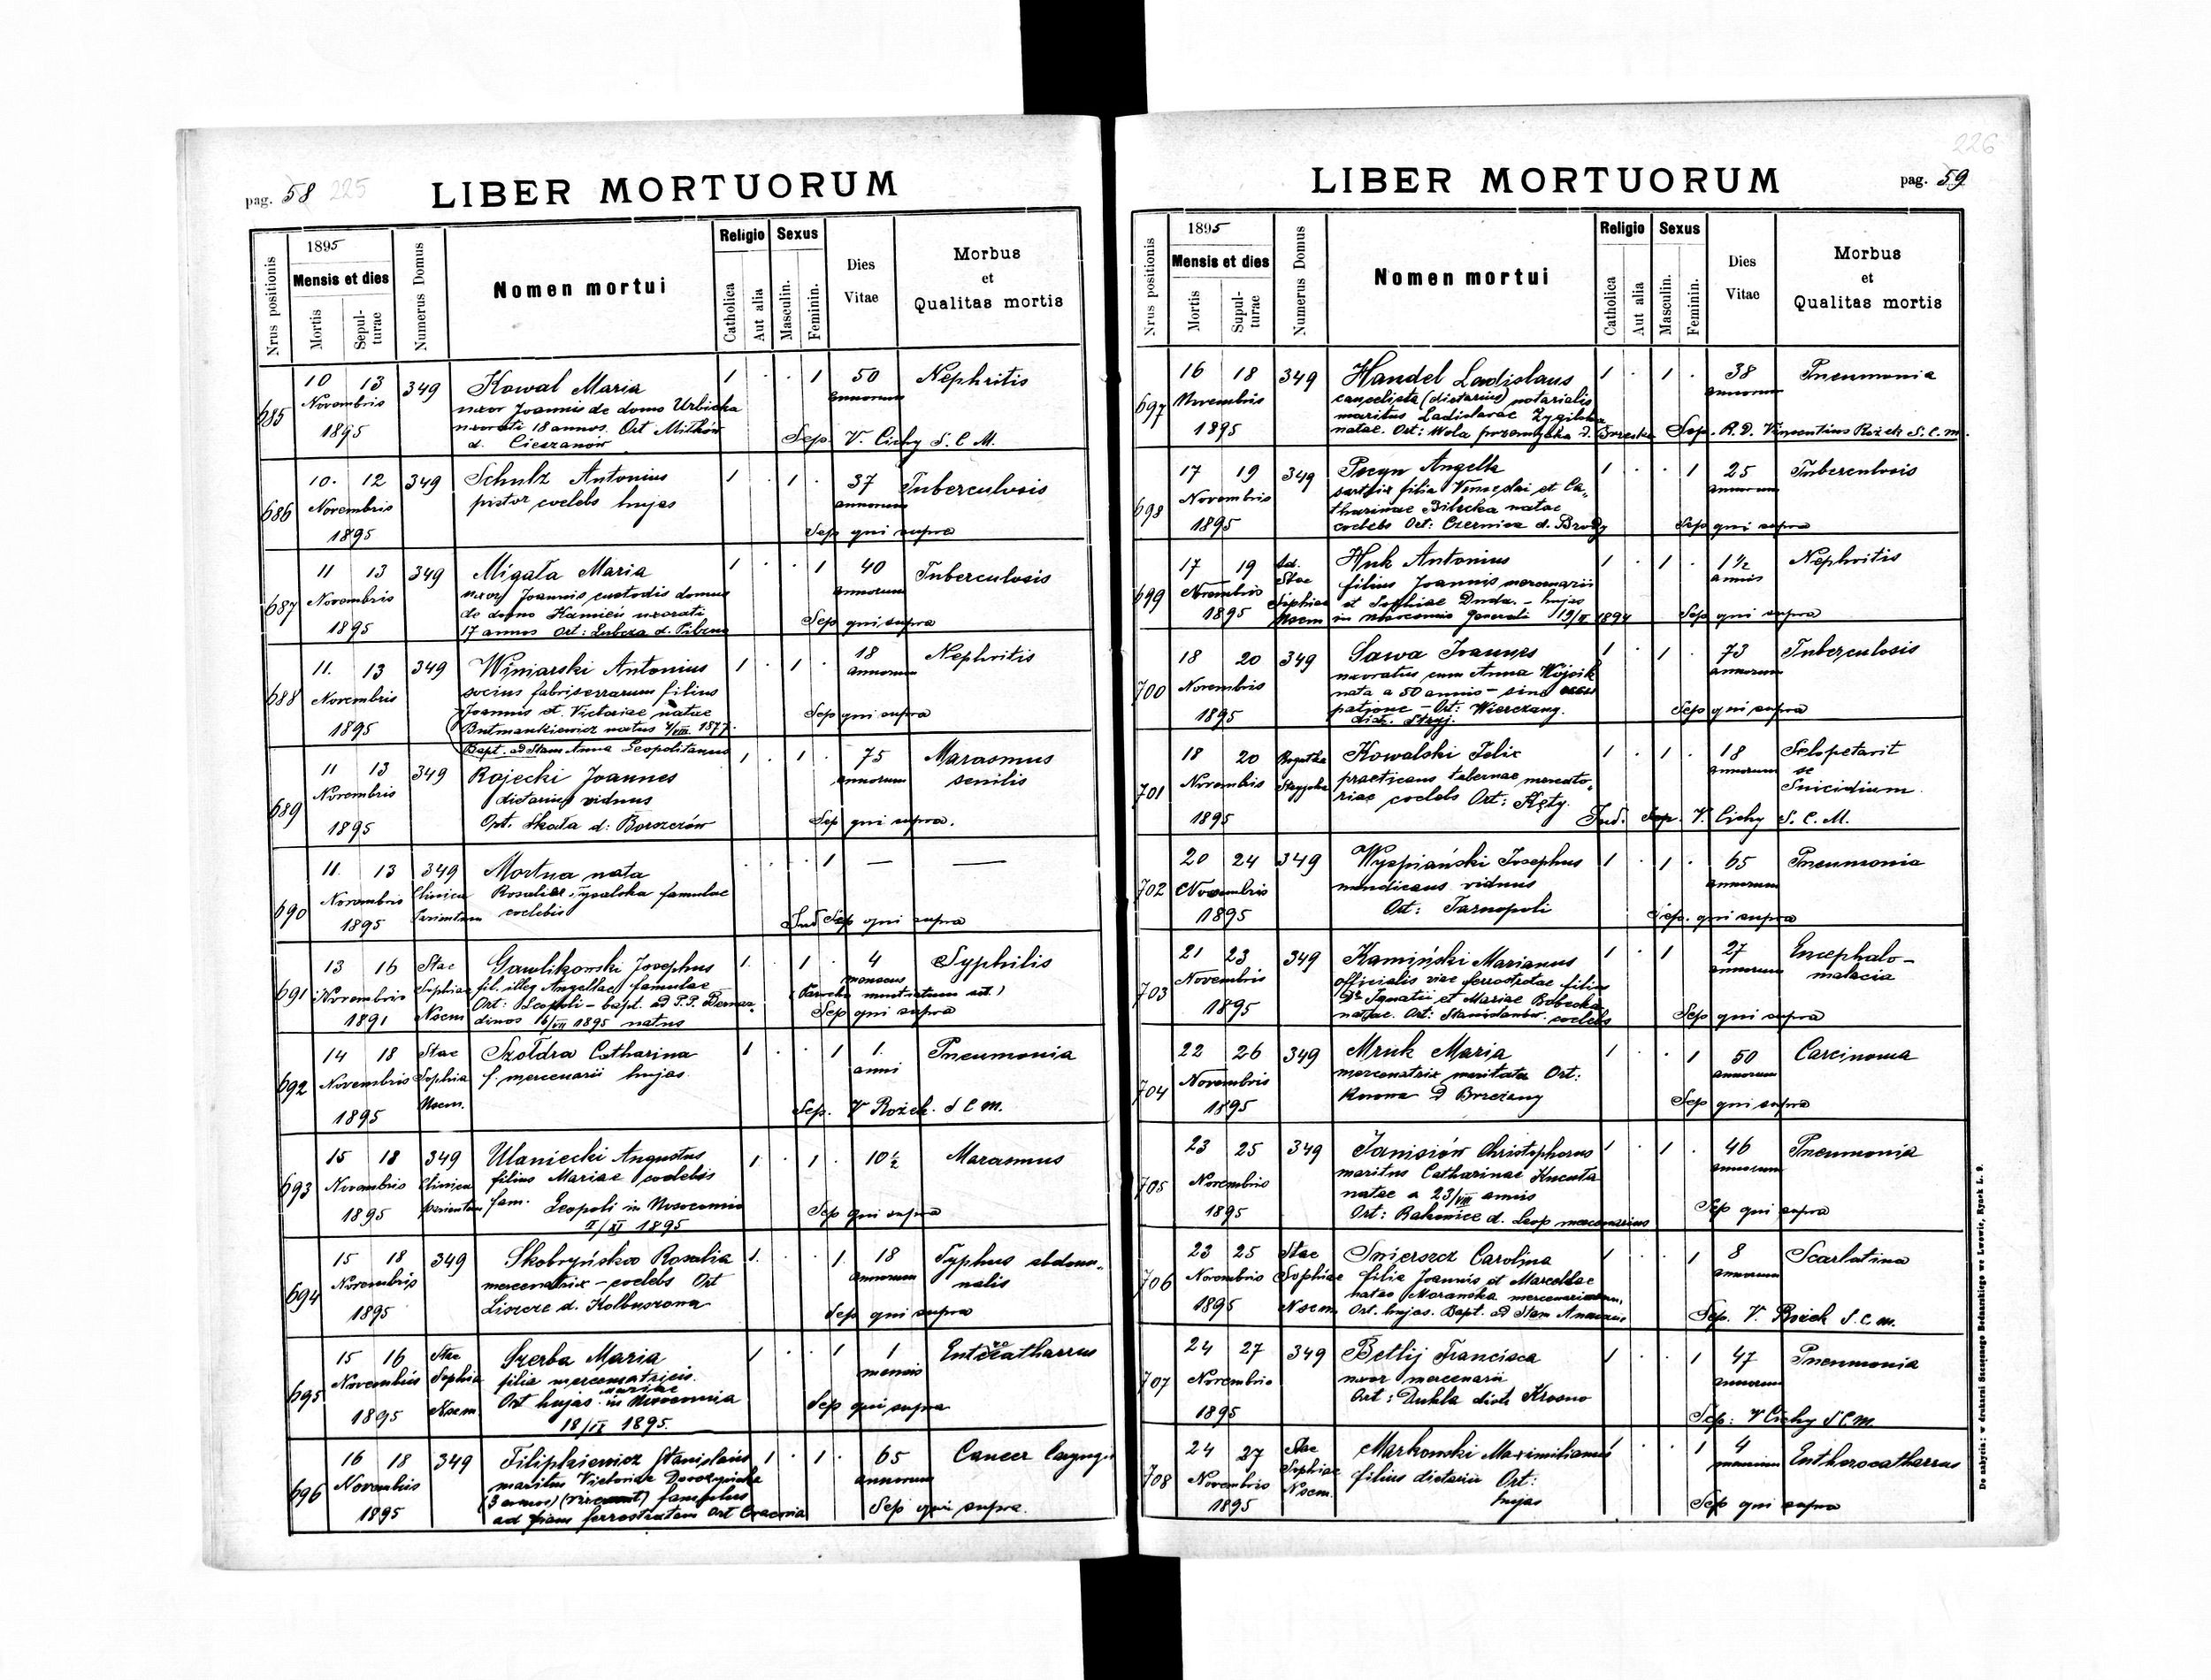 pag. 58 225
LIBER MORTUORUM
Nrus positionis
1895
Mensis et dies
Mortis
Sepul-
turae
Numerus Domus
Nomen mortui
Religio
Catholica
Aut alia
Sexus
Masculin.
Feminin.
Dies
Vitae
Morbus
et
Qualitas mortis
685 10 13 349 Kowal Maria 1 . . 1 50 Nephritis
Novembris uxor Joannis de domo Urbicka annorum
1895 uxorati 18 annos. Ort Mitków
d. Cieszanów Sep. V. Cichy S. C. M.
686 10. 12 349 Schulz Antonius 1 . 1 . 37 Tuberculosis
Novembris pistor coelebs hujas annorum
1895 Sep qui supra
687 11 13 349 Migała Maria 1 . . 1 40 Tuberculosis
Novembris uxor Joannis custodis domus annorum
de domo Kamień uxorati Sep qui supra
1895 17 annos Ort: Lubcza d. Pilzno
688 11. 13 349 Winiarski Antonius 1 . 1 . 18 Nephritis
Novembris socius fabriserrarum filius annorum
Joannis et Victoriae natae Sep qui supra
1895 Butmankiewicz natus 4/VIII 1877.
Bapt. ad Stam Anna Leopolitanus
689 11 13 349 Rojecki Joannes 1 . 1 . 75 Marasmus
Novembris dietarius viduus annorum senilis
1895 Ort. Skała d: Borszczów Sep qui supra.
690 11. 13 349 Mortua nata . . . 1 — —
Novembris Clinica Rosaliae famulae
1895 coelebis Jud Sep qui supra
691 13 16 Stae Gawlikowski Josephus 1. . 1 . 4 Syphilis
Novembris Sophiae fil. illeg Angellae famulae menses
1891 Nsem Ort: Leopoli - bapt. ad P.P. Bernar-
dinos 16/VII 1895 natus Sep qui supra
692 14 18 Stae Szołdra Catharina 1 . . 1 1. Pneumonia
Novembris Sophia f. mercenarii hujas. anni
1895 Nsem. Sep. V Rożek. S C M.
693 15 18 349 Ulaniecki Augustus 1 . 1 . 10 1/2 Marasmus
Novembris Clinica filius Mariae coelebis
1895 fam. Leopoli in Nosocomio Sep qui supra
I/XI 1895
694 15 18 349 Skobryńska Rosalia 1. . . 1. 18 Typhus abdomi-
Novembris mercenatrix - coelebs Ort annorum nalis
1895 Liszcze d. Kolbuszowa Sep qui supra
695 15 16 Stae Szerba Maria 1 . . 1 1 Enterocatharrus
Novembris Sophia filia mercenatricis. mensis
Mariae
1895 Nsem Ort hujas in Nosocomia Sep qui supra
18/IX 1895.
696 16 18 349 Filipkiewicz Stanislaus 1 . 1 . 65 Cancer laryngis
Novembris maritus Victoriae annorum
(3 annos) famulus
1895 ad viam ferrostratam Ort Cracovia Sep qui supra.
226
LIBER MORTUORUM
pag. 59
Nrus positionis
1895
Mensis et dies
Mortis
Supul-
turae
Numerus Domus
Nomen mortui
Religio
Catholica
Aut alia
Sexus
Masculin.
Feminin.
Dies
Vitae
Morbus
et
Qualitas mortis
697 16 18 349 Handel Ladislaus 1 . 1 . 38 Pneumonia
Novembris cancelista (dietarius) notarialis annorum
maritus Ladislavae
1895 natae. Ort: Wola d. Brzesko Sep. R. D. Vincentius Rożek S. C. M.
698 17 19 349 Angella 1 . . 1 25 Tuberculosis
Novembris sartrix filia Venceslai et Ca- annorum
tharinae Bilecka natae
1895 coelebs Ort: Czernica d. Brody Sep qui supra
699 17 19 Ad. Huk Antonius 1 . 1 . 1 1/2 Nephritis
Stae
Novembris Sophiae filius Joannis mercenarii annis
et Sophiae Duda. - hujas
1895 Nsem in Nosocomio generali 1894 Sep qui supra
700 18 20 349 Sawa Joannes 1 . 1 . 73 Tuberculosis
Novembris uxoratus cum Anna Wójcik annorum
nata a 50 annis - sine
1895 Ort: Wierczang. Sep qui supra
dist. Stryj.
701 18 20 Rogatka Kowalski Felix 1 . 1 . 18 Sclopetavit
Novembris Stryjska practicans tabernae mercato- annorum se
1895 riae coelebs Ort: Kęty. Suicidium
Jud. Sep. V. Cichy S. C. M.
702 20 24 349 Wyspiański Josephus 1 . 1 . 65 Pneumonia
Novembris mendicans viduus annorum
1895 Ort: Tarnopoli Sep. qui supra
703 21 23 349 Kamiński Marianus 1 . 1 27 Encephalo-
Novembris officialis viae ferrostratae filius annorum malacia
Dr Ignatii et Mariae Bobecka
1895 natae. Ort: Stanislawów. coelebs Sep qui supra
704 22 26 349 Mruk Maria 1 . . 1 50 Carcinoma
Novembris mercenatrix maritata Ort: annorum
1895 D Brzeżany Sep qui supra
705 23 25 349 Janisiów Christophorus 1 . 1 . 46 Pneumonia
maritus Catharinae annorum
Novembris natae a 23/VIII annis
1895 Ort: Bakowice d. Leop mercenarius Sep qui supra
706 23 25 Stae Snierszcz Carolina 1 . . 1 8 Scarlatina
Novembris Sophiae filia Joannis et Marcellae annorum
natae Moranska
1895 Nsem Ort. hujas. Bapt. ad Stam Annam Sep. V. Rożek S. C. M.
707 24 27 349 Betlij Francisca 1 . . 1 47 Pneumonia
Novembris uxor mercenarii annorum
1895 Ort: Dukla dist. Krosno Sep: V Cichy S C M.
708 24 27 Stae Markowski Maximilianus 1 . . 1 4 Entherocatharrus
Novembris Sophiae filius dietarii Ort: mensium
1895 Nsem. hujas Sep qui supra
Do nabycia: w drukarni Szczęsnego Bednarskiego we Lwowie, Rynek L. 9.